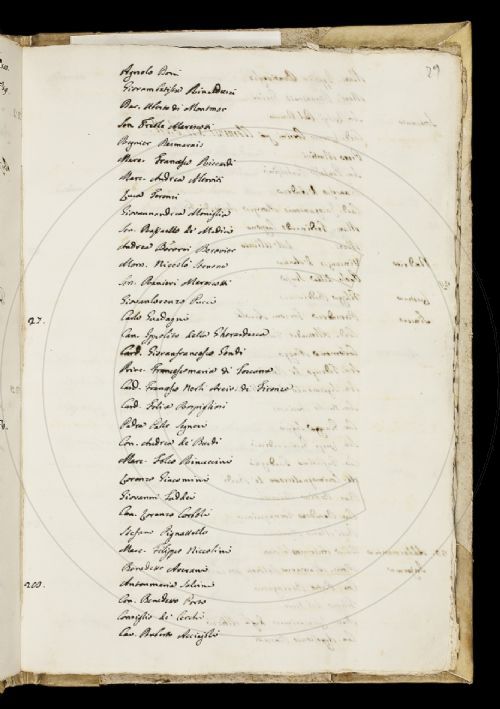 29
Agnolo Boni
Giovambatista Rinaldini
Bar. Alberto di Montmor
Sen.
Regnier Desmarais
Marc. Francesco Riccardi
Marc. Andrea
Luca Terenzi
Giovannandrea Moniglia
Sen. Raffaello de' Medici
Andrea
Mons. Niccolò Stenone
Sen. Ranieri Marescotti
Giovanlorenzo Pucci
27. Carlo Guadagni
Can. Ippolito della Gherardesca
Card. Giovanfrancesco Gondi
Princ. Francescomaria di Toscana
Card. Francesco Nerli Arciv. di Firenze
Card. Felice Rospigliosi
Padre Paolo Segneri
Con. Andrea de' Bardi
Marc. Folco Rinuccini
Lorenzo Giacomini
Giovanni Taddei
Can. Lorenzo
Stefano Pignattello
Marc. Filippo Niccolini
Benedetto Averani
200. Antonmaria Salvini
Con. Benedetto
Consiglio de' Cerchi
Cav. Ruberto Acciajoli